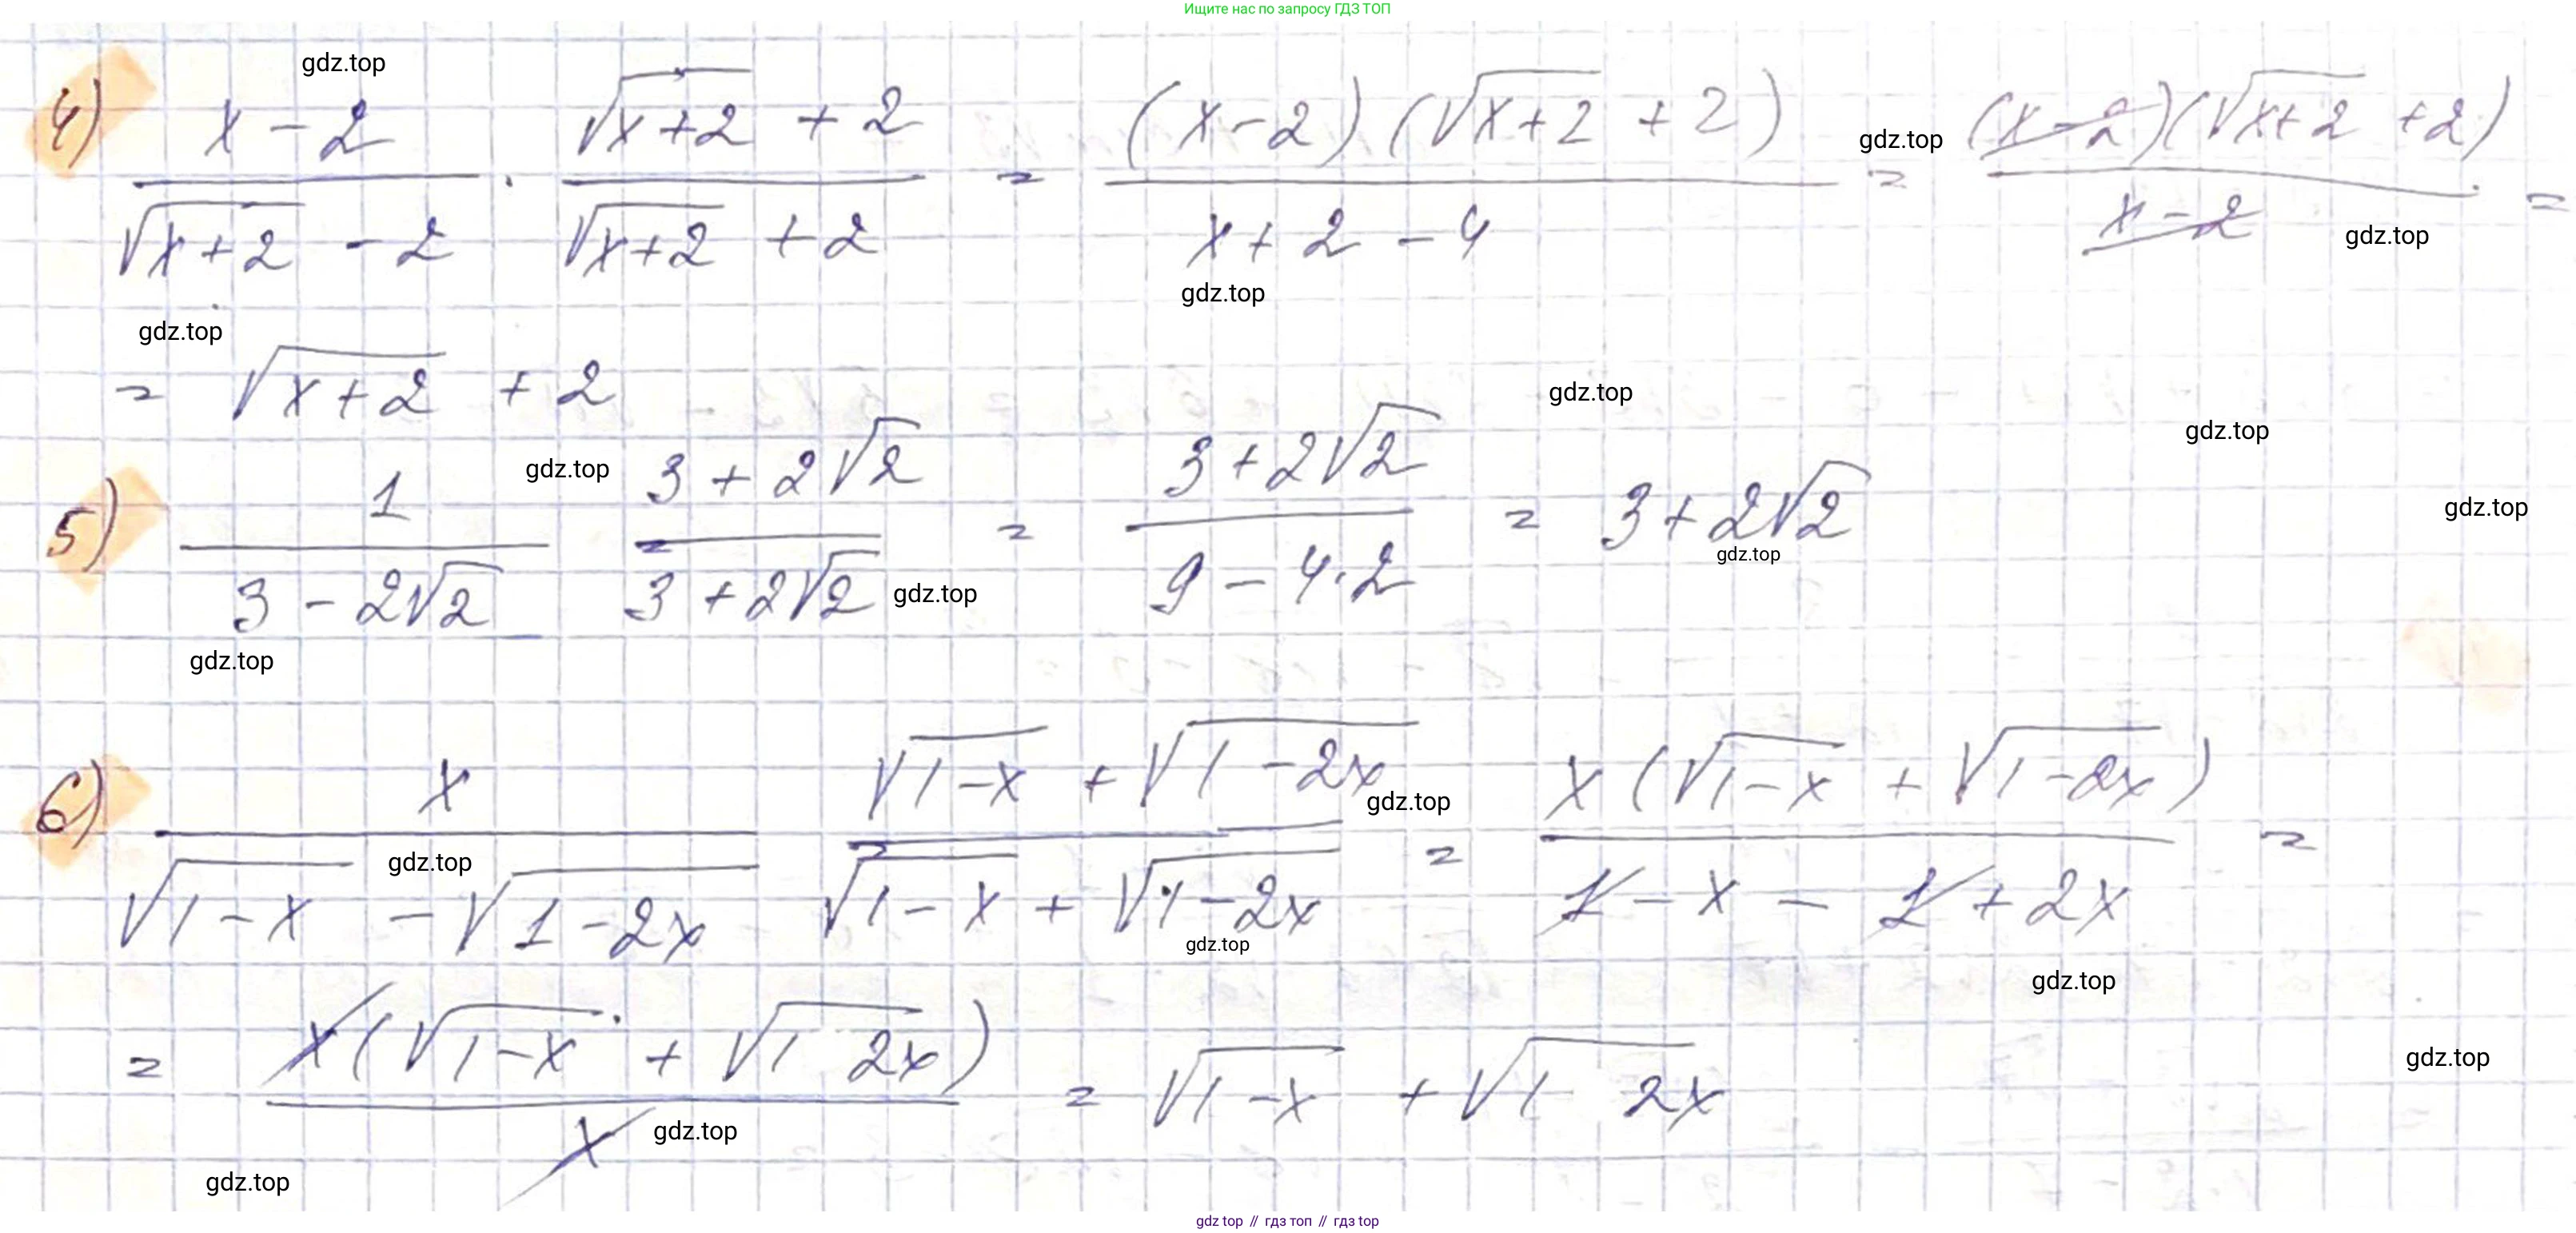 Ищите нас по запросу ГДЗ ТОП
gdz.top
4) (x - 2)/(√(x+2) - 2) · (√(x+2) + 2)/(√(x+2) + 2) = ((x-2)(√(x+2) + 2))/(x + 2 - 4) = ((x-2)(√(x+2) + 2))/(x-2) =
gdz.top
gdz.top
gdz.top
gdz.top
= √(x+2) + 2
gdz.top
gdz.top
gdz.top
gdz.top
5) 1/(3 - 2√2) (3 + 2√2)/(3 + 2√2) = (3 + 2√2)/(9 - 4·2) = 3 + 2√2
gdz.top
gdz.top
gdz.top
6) x/(√(1-x) - √(1-2x)) (√(1-x) + √(1-2x))/(√(1-x) + √(1-2x)) = (x(√(1-x) + √(1-2x)))/(1 - x - 1 + 2x) =
gdz.top
gdz.top
gdz.top
gdz.top
= (x(√(1-x) + √(1 2x)))/x = √(1-x) + √(1 2x)
gdz.top
gdz.top
gdz.top
gdz top // гдз топ // гдз top